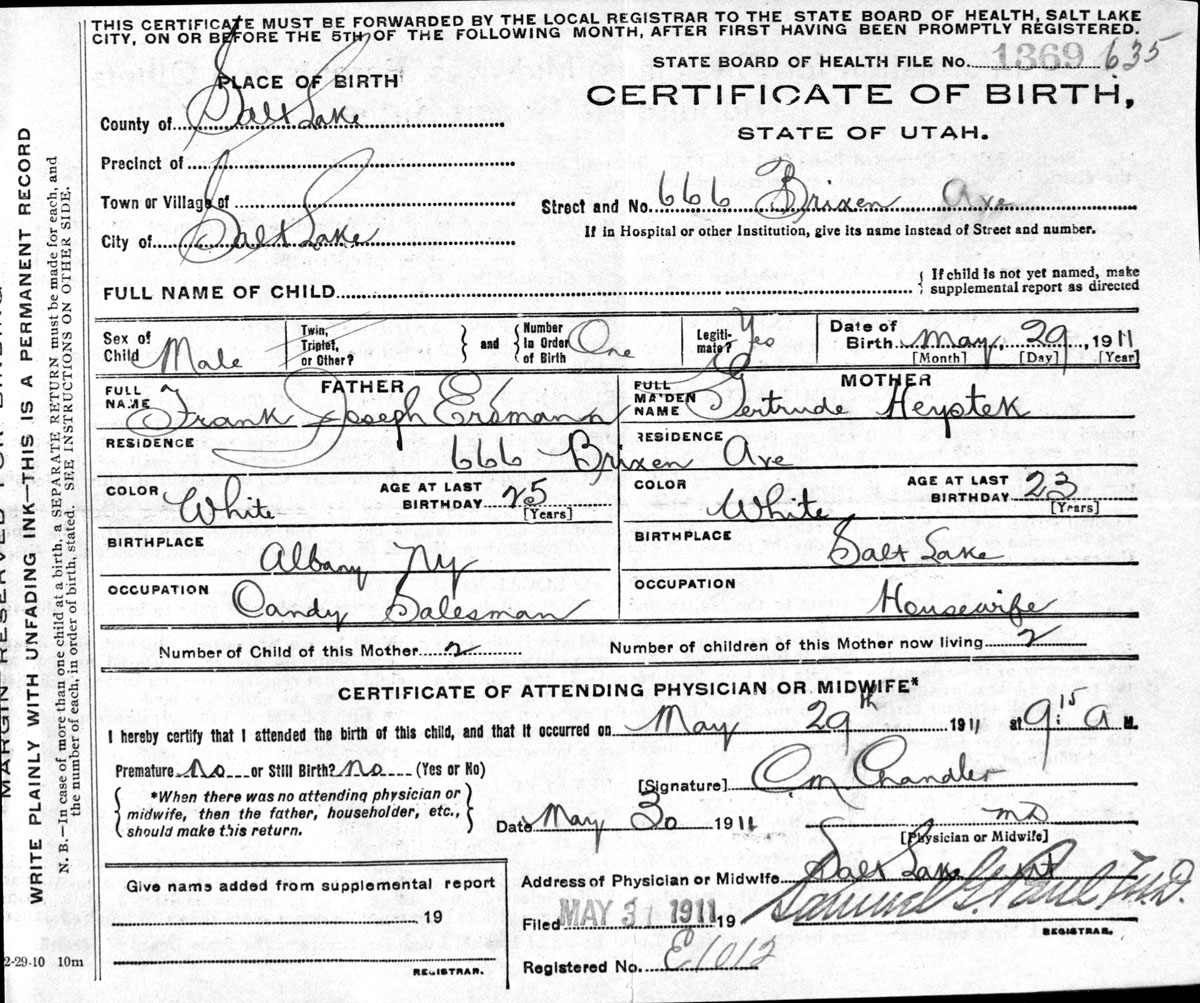 THIS CERTIFICATE MUST BE FORWARDED BY THE LOCAL REGISTRAR TO THE STATE BOARD OF HEALTH, SALT LAKE
CITY, ON OR BEFORE THE 5TH OF THE FOLLOWING MONTH, AFTER FIRST HAVING BEEN PROMPTLY REGISTERED.
STATE BOARD OF HEALTH FILE No. 1369 635
PLACE OF BIRTH
CERTIFICATE OF BIRTH,
STATE OF UTAH.
County of Salt Lake
Precinct of
Town or Village of
Street and No. 666 Brixen Ave
City of Salt Lake
If in Hospital or other Institution, give its name instead of Street and number.
FULL NAME OF CHILD
{ If child is not yet named, make
supplemental report as directed
Sex of Child Male
Twin, Triplet, or Other? } and { Number in Order of Birth One
Legiti-mate? Yes
Date of Birth May 29, 1911
[Month] [Day] [Year]
FATHER
FULL NAME Frank Joseph Ersmann
MOTHER
FULL MAIDEN NAME Gertrude Heystek
RESIDENCE 666 Brixen Ave
RESIDENCE
COLOR White AGE AT LAST BIRTHDAY 25 [Years]
COLOR White AGE AT LAST BIRTHDAY 23 [Years]
BIRTHPLACE Albany Ny
BIRTHPLACE Salt Lake
OCCUPATION Candy Salesman
OCCUPATION Housewife
Number of Child of this Mother 2 Number of children of this Mother now living 2
CERTIFICATE OF ATTENDING PHYSICIAN OR MIDWIFE*
I hereby certify that I attended the birth of this child, and that it occurred on May 29th 1911 at 9:15 a M.
Premature No or Still Birth? No (Yes or No)
[Signature] C M Chandler
{ *When there was no attending physician or
midwife, then the father, householder, etc.,
should make this return. }
Date May 30 1911
MD
[Physician or Midwife]
Address of Physician or Midwife Salt Lake Ut
Give name added from supplemental report
19
REGISTRAR.
Filed MAY 31 1911 19 Samuel G. Paul M.D.
REGISTRAR.
Registered No. E1012
2-29-10 10m
MARGIN RESERVED FOR BINDING
WRITE PLAINLY WITH UNFADING INK—THIS IS A PERMANENT RECORD
N. B.—In case of more than one child at a birth, a SEPARATE RETURN must be made for each, and
the number of each, in order of birth, stated. SEE INSTRUCTIONS ON OTHER SIDE.